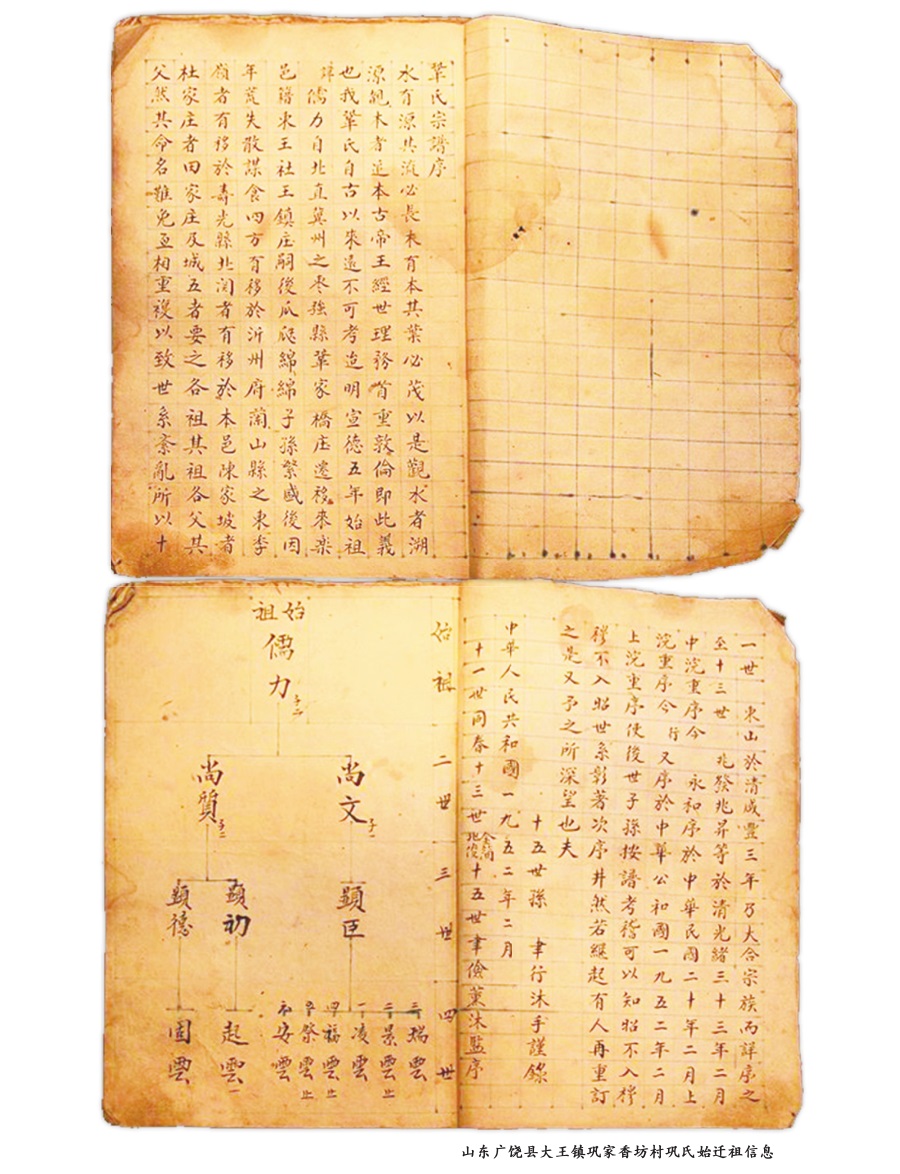 鞏氏宗譜序
水有源其流必長木有本其葉必茂以是觀水者溯
源觀木者追本古帝王經世理務首重敦倫即此義
也我鞏氏自古以來遠不可考迨明宣德五年始祖
諱儒力自北直冀州之枣強縣鞏家橋庄遷移來樂
邑籍東王社王鎮庄嗣後瓜瓞綿綿子孫繁盛後因
年荒失散謀食四方有移於沂州府蘭山縣之東李
嶺者有移於壽光縣北関者有移於本邑陳家坡者
杜家庄者田家庄及城五者要之各祖其祖各父其
父然其命名難免互相重複以致世系紊亂所以十
一世 東山於清咸豐三年乃大合宗族而詳序之
至十三世 兆發兆昇等於清光緒三十三年二月
中浣重序今 永和序於中華民國二十年二月上
浣重序今 行 又序於中華公和國一九五二年二月
上浣重序使後世子孫按譜考稽可以知昭不入穆
穆不入昭世系彰著次序井然若継起有人再重訂
之是又予之所深望也夫
十五世孫 聿行沐手謹錄
中華人民共和國一九五二年二月
十一世同春十三世金蘭兆俊十五世聿儉薰沐監序
始祖 二世 三世 四世
始祖
儒力 子二
尚文 子一
尚質 子二
顕臣
顕初
顕德
三 瑞雲
二 景雲 止
一 凌雲
四 福雲 止
五 祭雲 止
六 安雲
起雲 一
固雲
山东广饶县大王镇巩家香坊村巩氏始迁祖信息